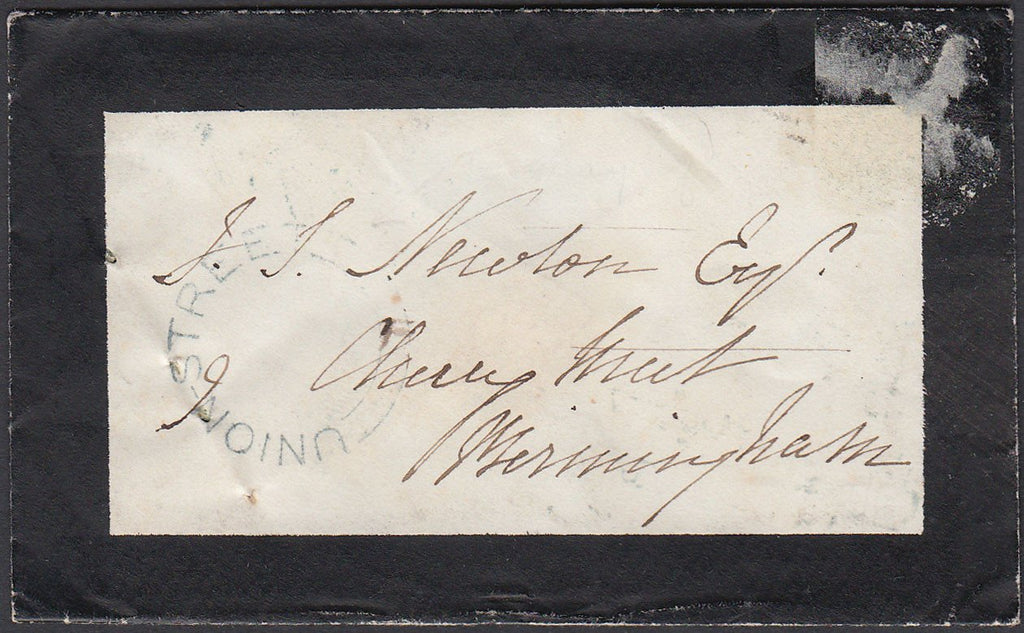 J. S. Newton Esqr.
9 Cherry Street
Birmingham
UNION-STREET